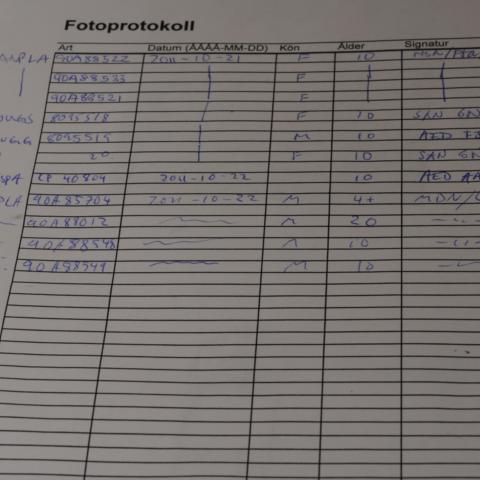 Fotoprotokoll
Art Datum (ÅÅÅÅ-MM-DD) Kön Ålder Signatur
90A88522 2011-10-21 F 10
90A88533 F
90A88521 F
8095518 F 10 SAN
8095519 M 10 AED
20 F 10 SAN
40804 2011-10-22 10 AED
90A85704 2011-10-22 M 4+ MDN/
90A88012 M 20
90A88548 M 10
90A88549 M 10